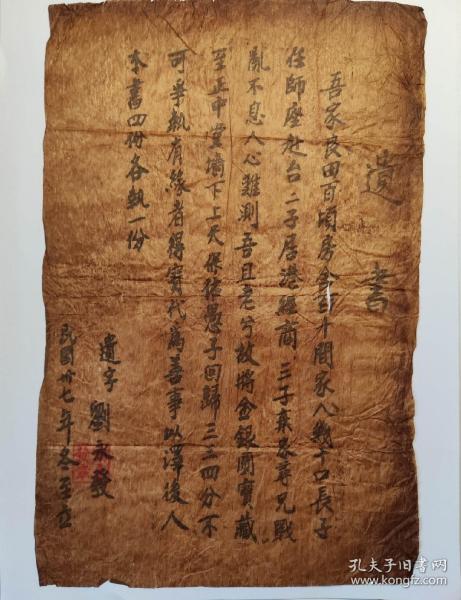 遺書
吾家良田百頃房舍百十間家人幾十口長子
任師座赴台二子居港經商三子棄家尋兄戰
亂不息人心難測吾且老兮故將金銀圓寶藏
至正中堂墻下上天保佑愚子回歸三三四分不
可爭執有緣者得實代為善事以澤後人
本書四份各執一份
遺字 劉永發
民國卅七年冬至立
孔夫子旧书网
www.kongfz.com